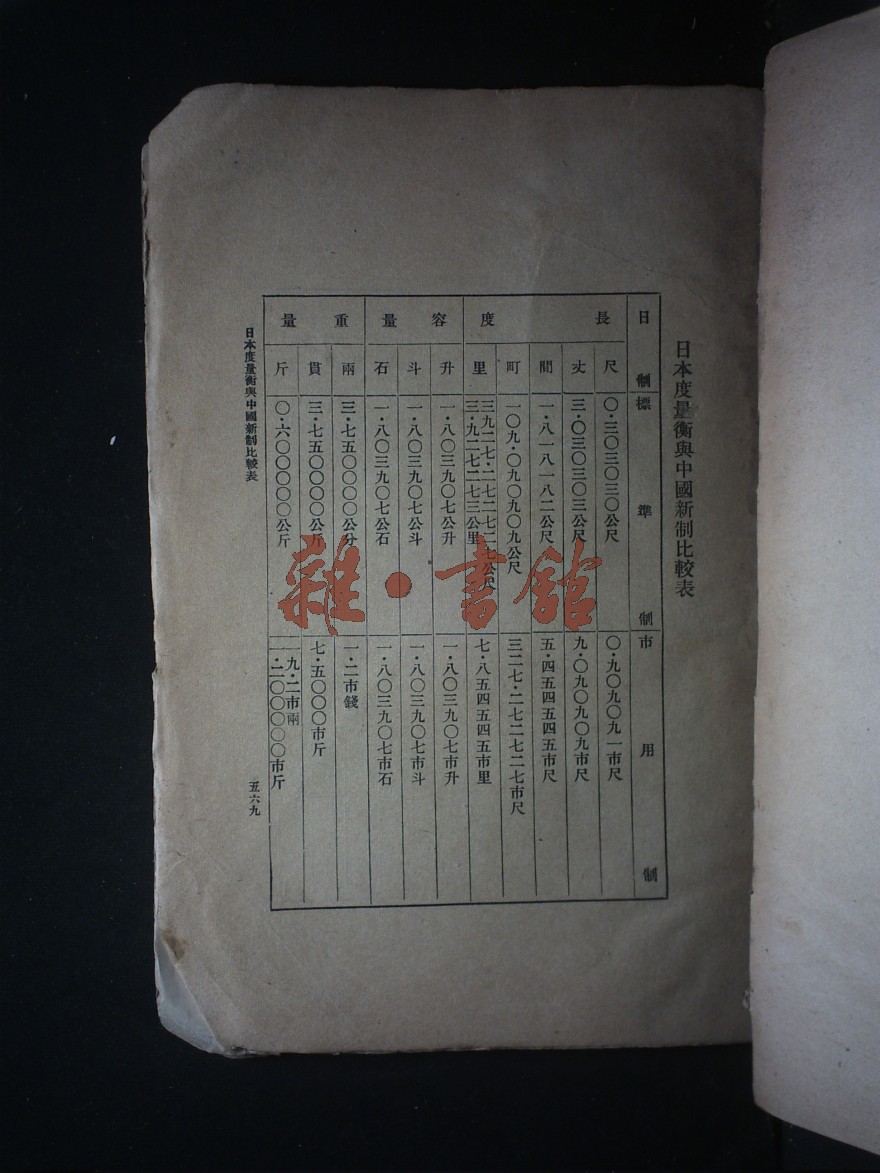 日本度量衡與中國新制比較表
日制 標準制 市用制
長度
尺 〇·三〇三〇三〇公尺 〇·九〇九〇九一市尺
丈 三·〇三〇三〇三公尺 九·〇九〇九〇九市尺
間 一·八一八一八二公尺 五·四五四五四五市尺
町 一〇九·〇九〇九〇九公尺 三二七·二七二七二七市尺
里 三九二七·二七二七二七公尺
三·九二七二七三公里 七·八五四五四五市里
容量
升 一·八〇三九〇七公升 一·八〇三九〇七市升
斗 一·八〇三九〇七公斗 一·八〇三九〇七市斗
石 一·八〇三九〇七公石 一·八〇三九〇七市石
重量
兩 三·七五〇〇〇〇公分 一·二市錢
貫 三·七五〇〇〇〇公斤 七·五〇〇〇市斤
斤 〇·六〇〇〇〇〇公斤 一九·二市兩
一·二〇〇〇〇〇市斤
日本度量衡與中國新制比較表
五六九
雜·書館